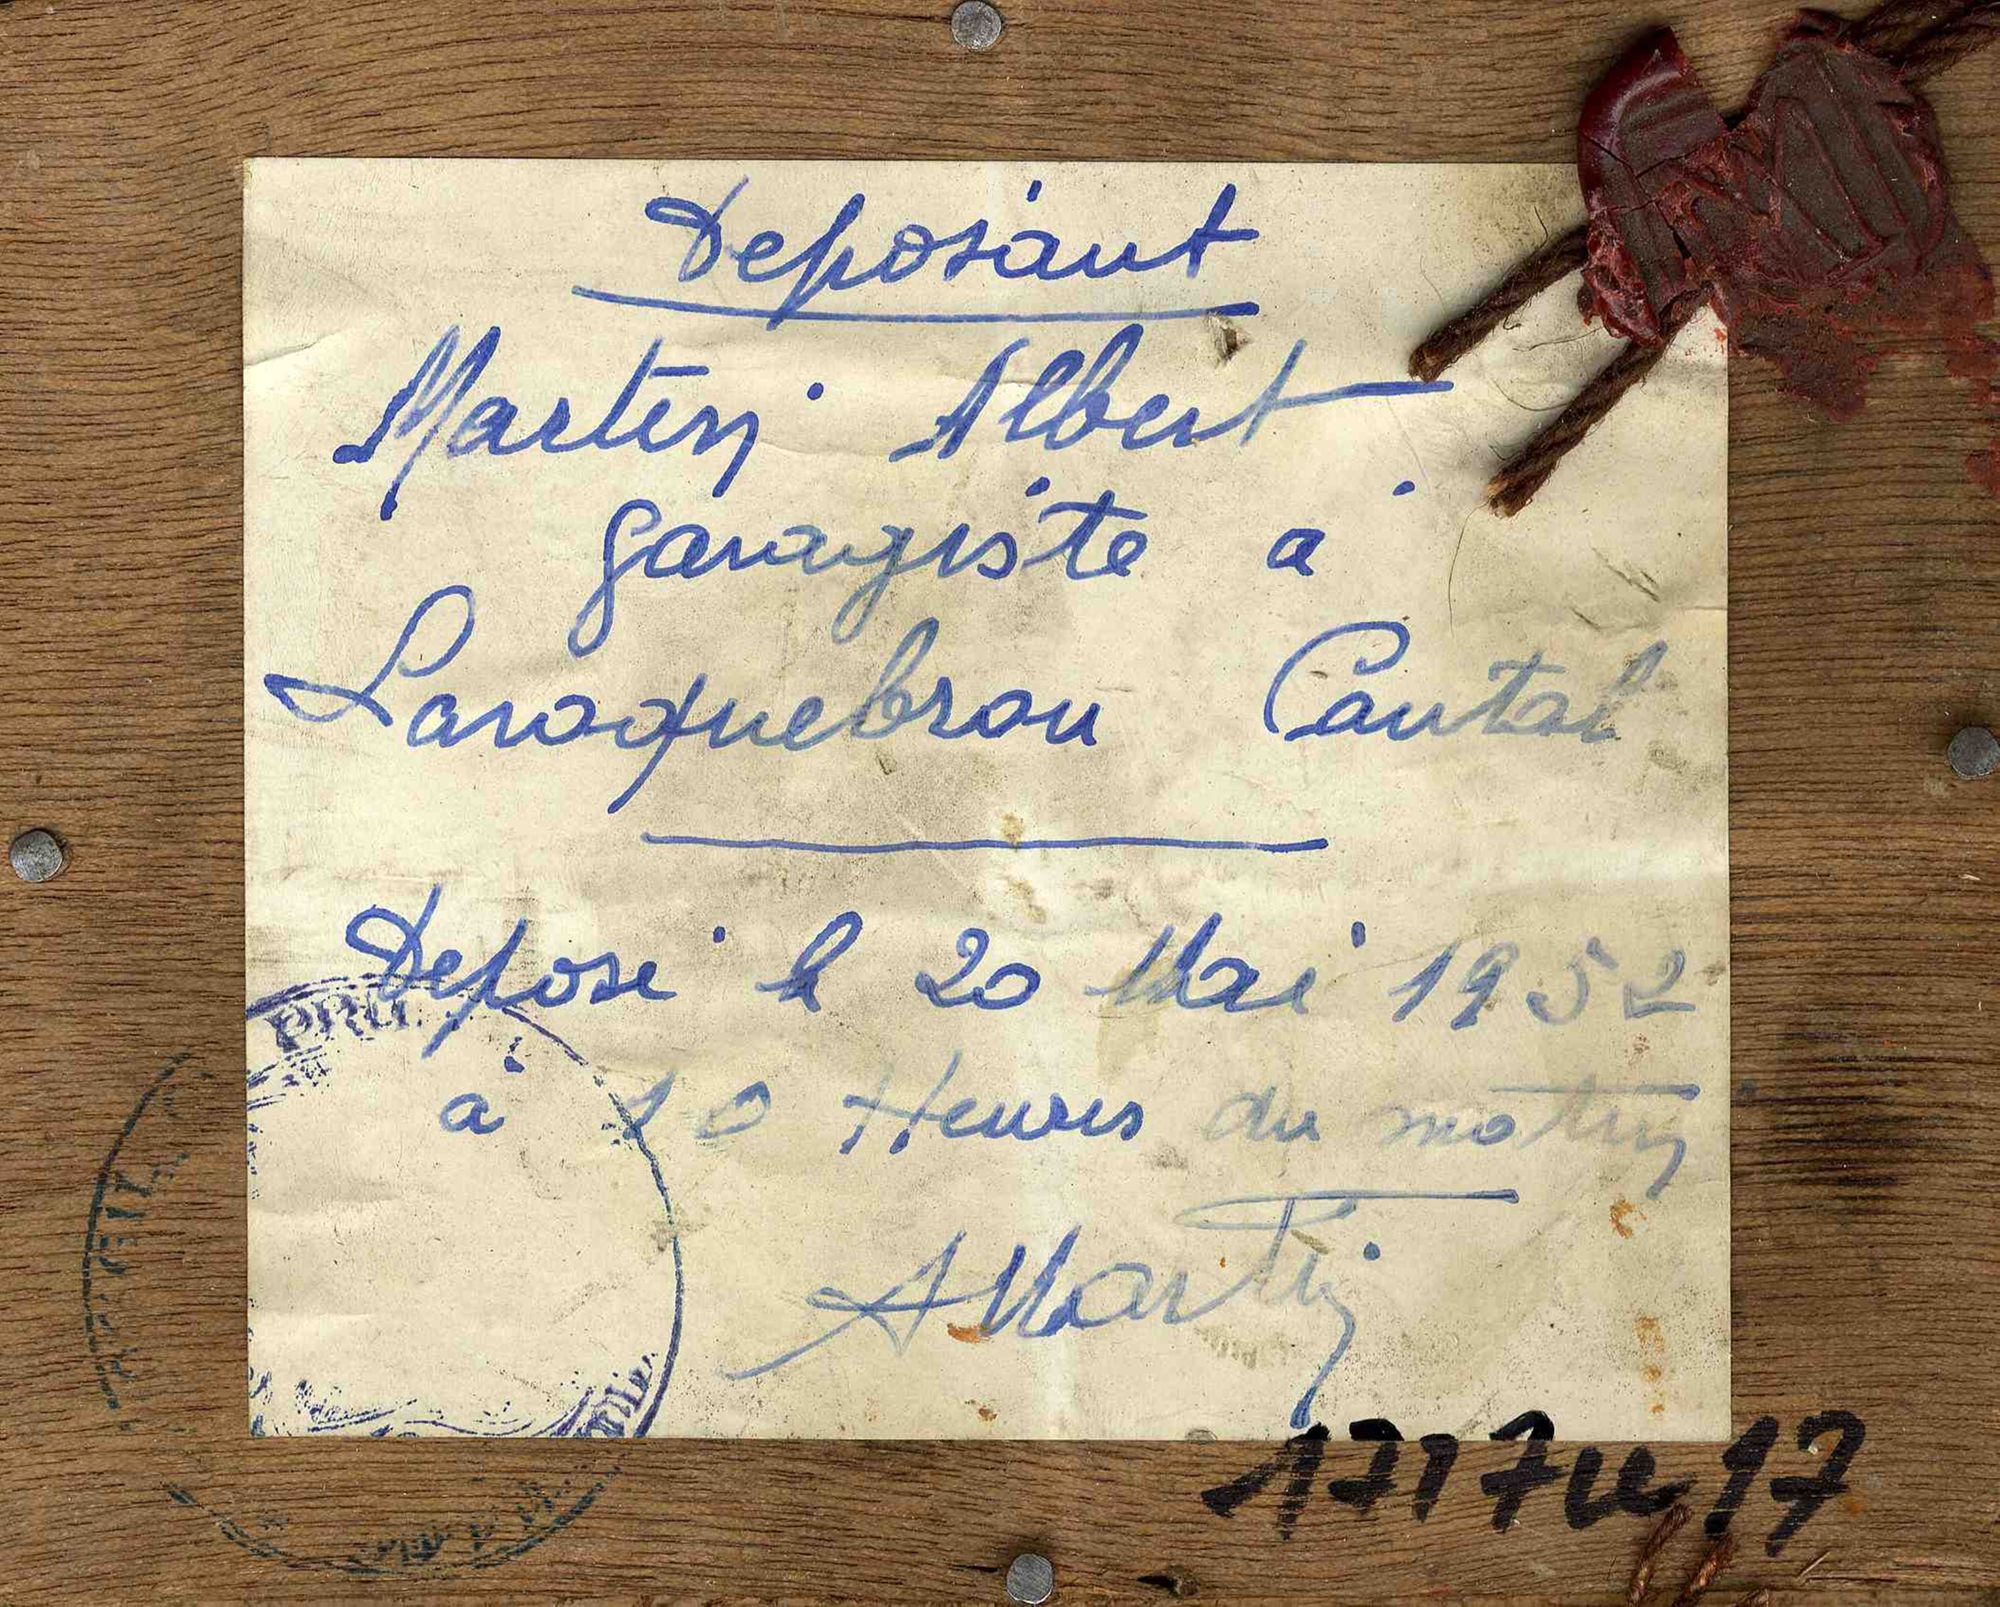 Deposant
Martin Albert
garagiste à
Laroquebrou Cantal
Deposé le 20 Mai 1952
à 10 Heures du matin
AMartin